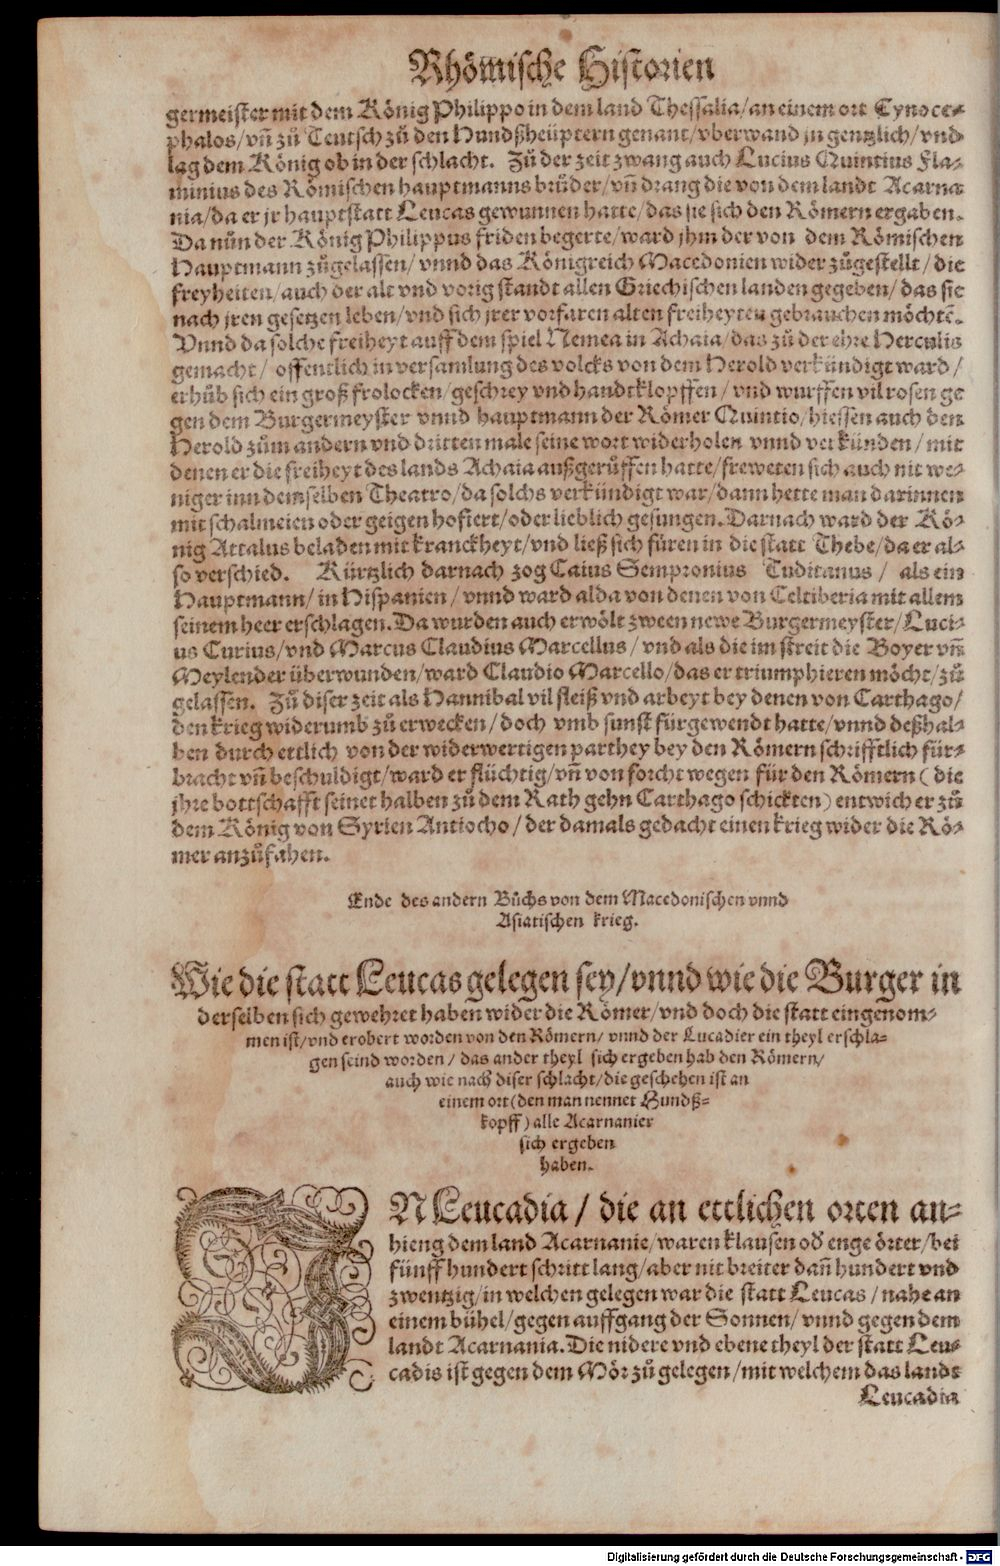 Rhömische Historien
germeister mit dem König Philippo in dem land Thessalia/an einem ort Cynoce-
phalos/vñ zů Teutsch zů den Hundßheüptern genant/vberwand jn gentzlich/vnd
lag dem König ob in der schlacht. Zů der zeit zwang auch Lucius Quintius Fla-
minius des Römischen hauptmanns brůder/vñ drang die von dem landt Acarna
nia/da er jr hauptstatt Leucas gewunnen hatte/das sie sich den Römern ergaben.
Da nůn der König Philippus friden begerte/ward jhm der von dem Römischen
Hauptmann zůgelassen/vnnd das Königreich Macedonien wider zůgestellt/die
freyheiten/auch der alt vnd vorig standt allen Griechischen landen gegeben/das sie
nach jren gesetzen leben/vnd sich jrer vorfaren alten freiheyten gebrauchen möchtẽ.
Vnnd da solche freiheyt auff dem spiel Nemea in Achaia/das zů der ehre Herculis
gemacht/ offentlich in versamlung des volcks von dem Herold verkündigt ward/
erhůb sich ein groß frolocken/geschrey vnd handtklopffen/vnd wurffen vil rosen ge
gen dem Burgermeyster vnnd hauptmann der Römer Quintio/hiessen auch den
Herold zům andern vnd dritten male seine wort widerholen vnnd verkünden/mit
denen er die freiheyt des lands Achaia außgerůffen hatte/freweten sich auch nit we-
niger inn demselben Theatro/da solchs verkündigt war/dann hette man darinnen
mit schalmeien oder geigen hofiert/oder lieblich gesungen. Darnach ward der Kö-
nig Attalus beladen mit kranckheyt/vnd ließ sich füren in die statt Thebe/da er al-
so verschied. Kürtzlich darnach zog Caius Sempronius Tuditanus/ als ein
Hauptmann/in Hispanien/vnnd ward alda von denen von Celtiberia mit allem
seinem heer erschlagen. Da wurden auch erwölt zween newe Burgermeyster/Luci-
us Curius/vnd Marcus Claudius Marcellus/vnd als die im streit die Boyer vñ
Meylender überwunden/ward Claudio Marcello/das er triumphieren möcht/zů
gelassen. Zů diser zeit als Hannibal vil fleiß vnd arbeyt bey denen von Carthago/
den krieg widerumb zů erwecken/doch vmb sunst fürgewendt hatte/vnnd deßhal-
ben durch ettlich von der widerwertigen parthey bey den Römern schrifftlich für-
bracht vñ beschuldigt/ward er flüchtig/vñ von forcht wegen für den Römern (die
jhre bottschafft seinet halben zů dem Rath gehn Carthago schickten) entwich er zů
dem König von Syrien Antiocho/der damals gedacht einen krieg wider die Rö-
mer anzůfahen.
Ende des andern Bůchs von dem Macedonischen vnnd
Asiatischen krieg.
Wie die statt Leucas gelegen sey/vnnd wie die Burger in
derselben sich gewehret haben wider die Römer/vnd doch die statt eingenom-
men ist/vnd erobert worden von den Römern/vnnd der Lucadier ein theyl erschla-
gen seind worden/das ander theyl sich ergeben hab den Römern/
auch wie nach diser schlacht/die geschehen ist an
einem ort (den man nennet Hundß-
kopff) alle Acarnanier
sich ergeben
haben.
IN Leucadia/ die an ettlichen orten an-
hieng dem land Acarnanie/waren klausen od̕ enge örter/bei
fünff hundert schritt lang/aber nit breiter dañ hundert vnd
zwentzig/in welchen gelegen war die statt Leucas/nahe an
einem bühel/gegen auffgang der Sonnen/vnnd gegen dem
landt Acarnania. Die nidere vnd ebene theyl der statt Leu-
cadis ist gegen dem Mör zů gelegen/mit welchem das landt
Leucadia
Digitalisierung gefördert durch die Deutsche Forschungsgemeinschaft - DFG